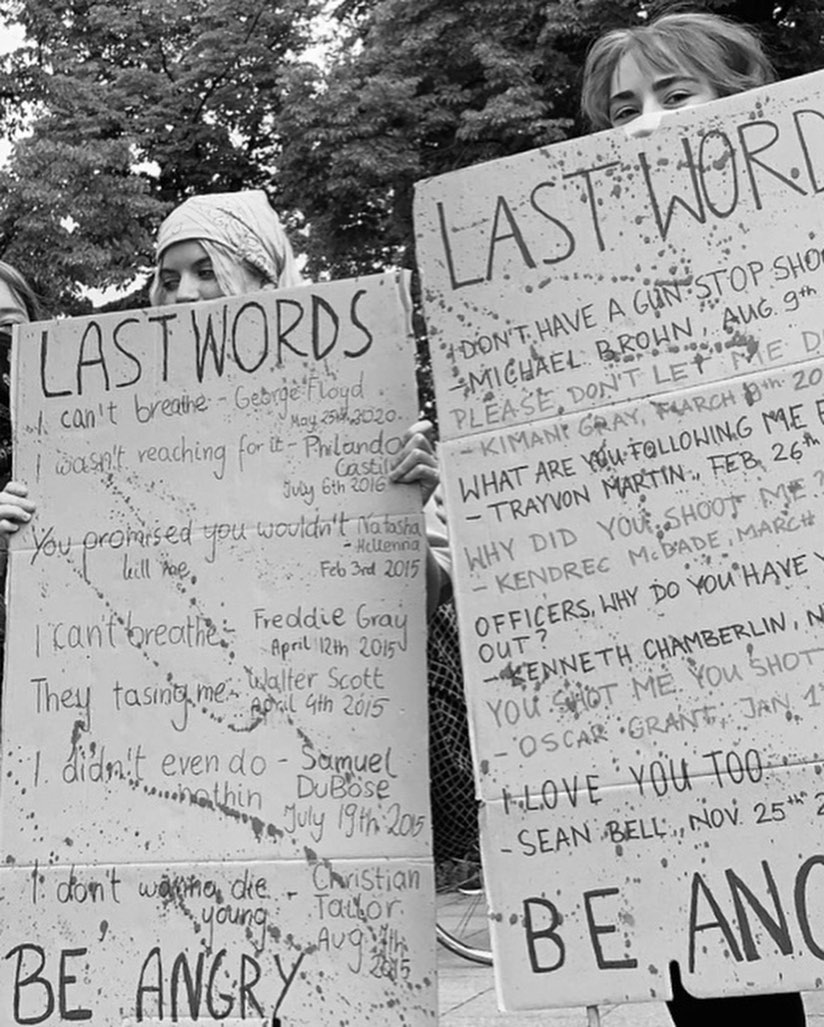 LAST WORDS
I can't breathe - George Floyd
May 25th 2020
I wasn't reaching for it - Philando
Castile
July 6th 2016
You promised you wouldn't Natasha
kill me - McKenna
Feb 3rd 2015
I can't breathe - Freddie Gray
April 12th 2015
They tasing me - Walter Scott
April 4th 2015
I didn't even do - Samuel
nothin DuBose
July 19th 2015
I don't wanna die - Christian
young Taylor
Aug 7th
2015
BE ANGRY
LAST WORD
I DON'T HAVE A GUN. STOP SHO
- MICHAEL BROWN, AUG. 9th
PLEASE DON'T LET ME D
- KIMANI GRAY, MARCH 20
WHAT ARE YOU FOLLOWING ME F
- TRAYVON MARTIN, FEB. 26th
WHY DID YOU SHOOT ME?
- KENDREC McDADE, MARCH
OFFICERS, WHY DO YOU HAVE Y
OUT?
- KENNETH CHAMBERLIN, N
YOU SHOT ME YOU SHOT
- OSCAR GRANT, JAN 1
I LOVE YOU TOO
- SEAN BELL, NOV. 25th 2
BE ANG